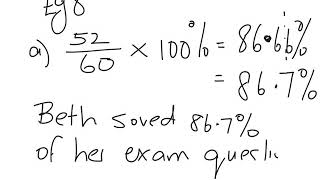 Eg 8
a) 52/60 × 100% = 86.66%
= 86.7%
Beth solved 86.7%
of her exam questi